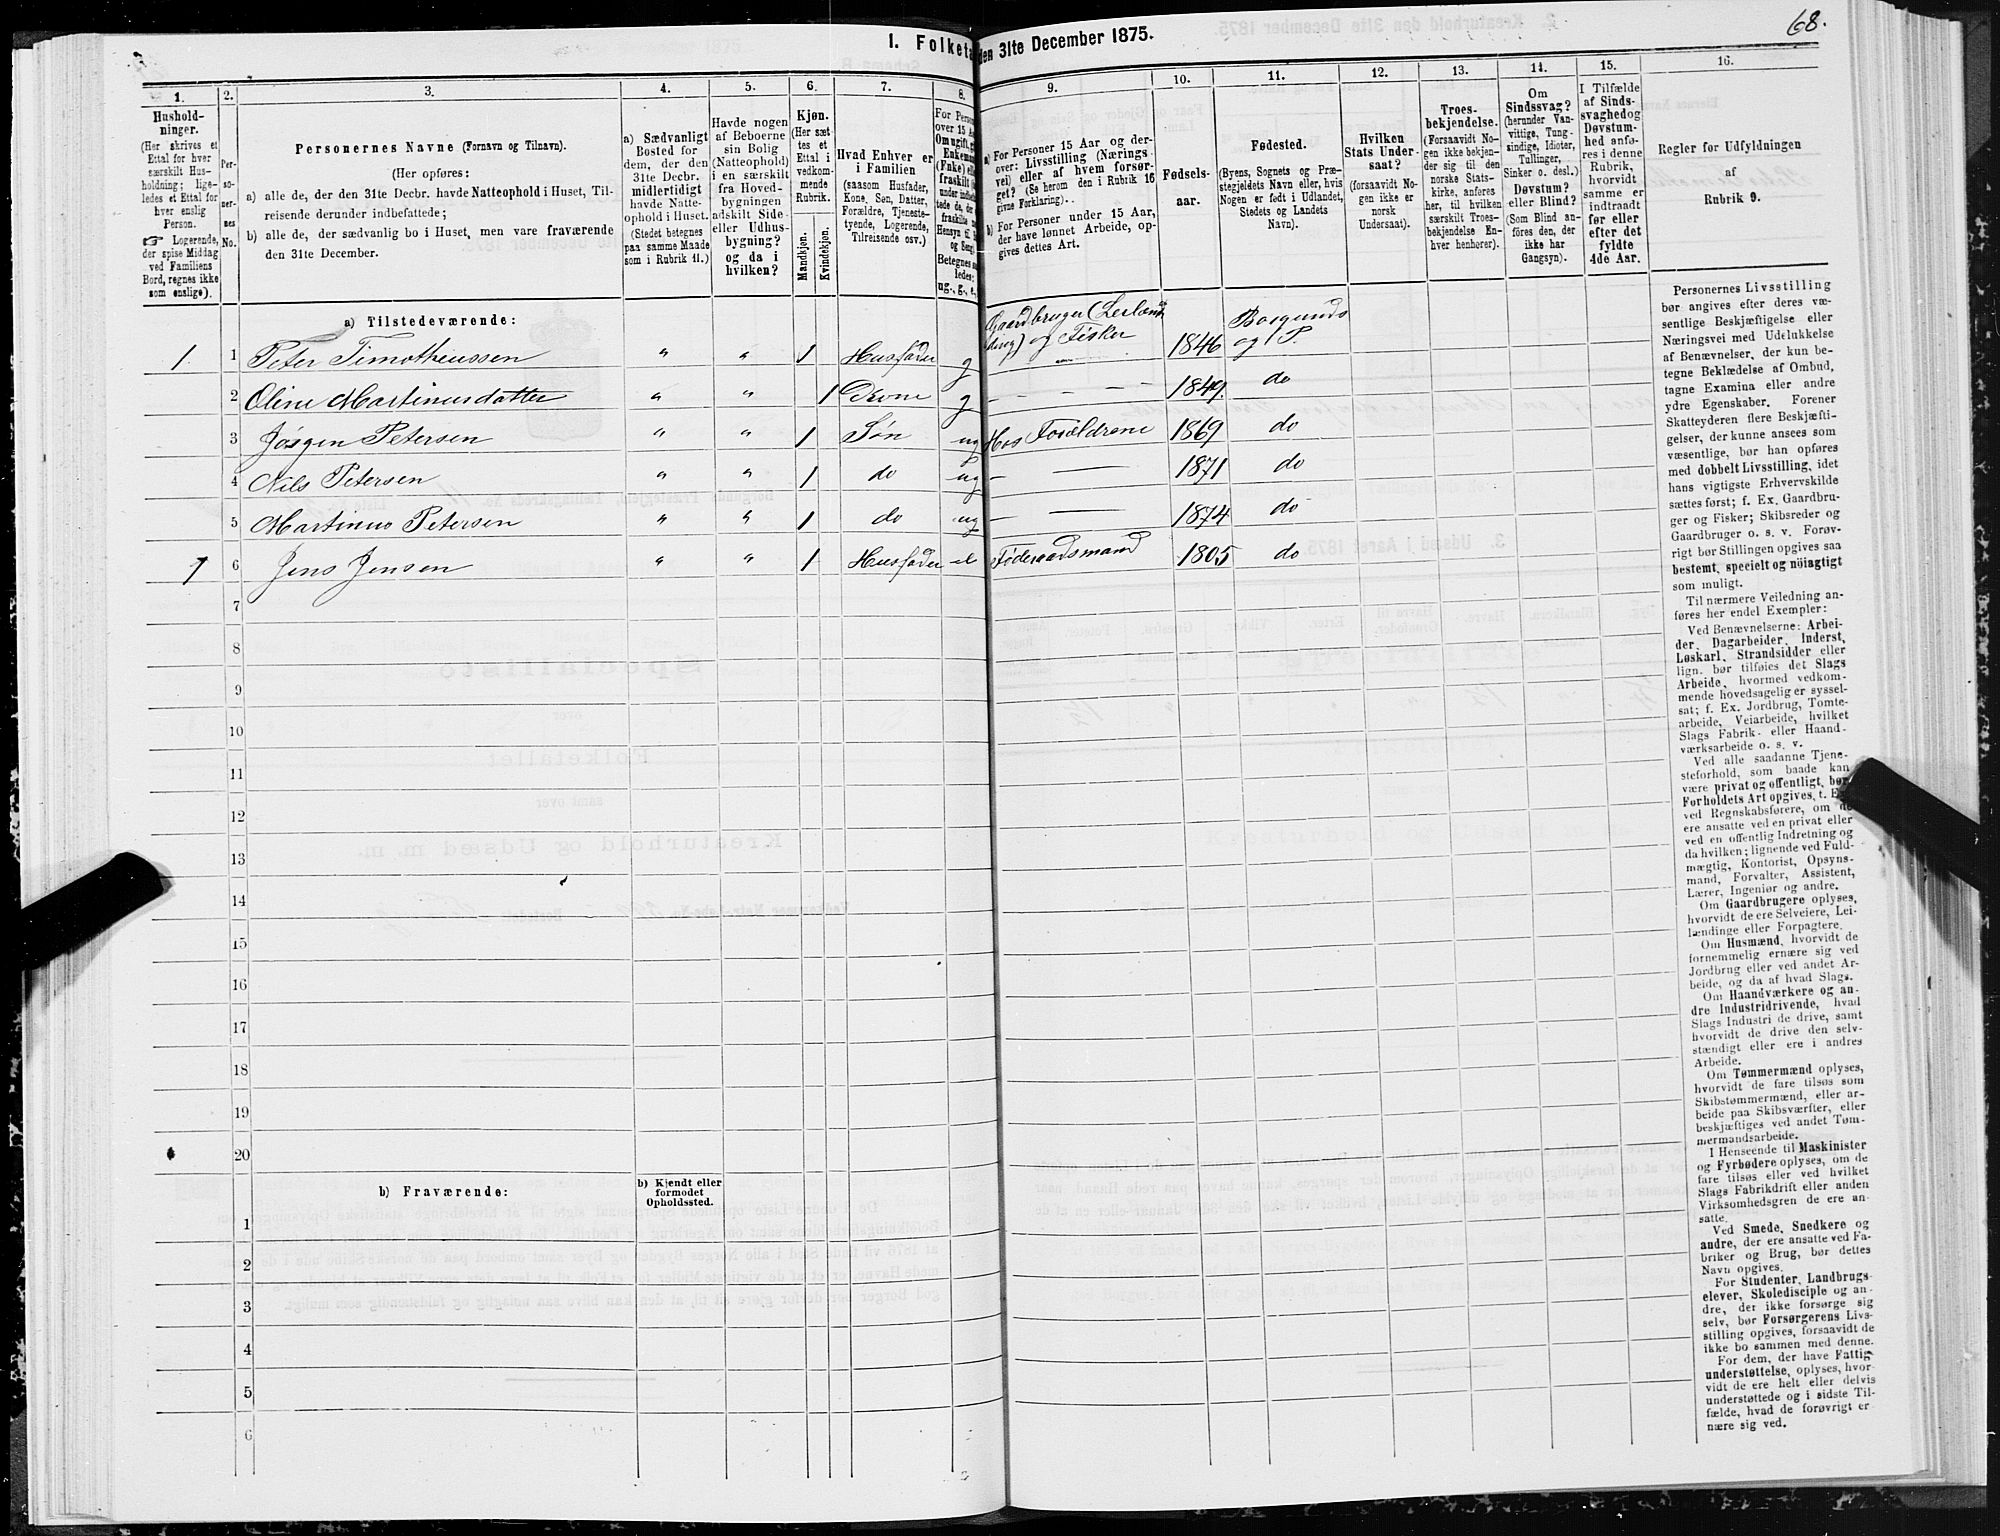 68.
I. Folketa
den 31te December 1875.
1.
2.
3.
4.
5.
6.
7.
8.
9.
10.
11.
12.
13.
14.
15.
16.
Hushold-
ninger.
(Her skrives et
Ettal for hver
særskilt Hus-
holdning; lige-
ledes et Ettal for
hver enslig
Person.
☞ Logerende,
der spise Middag
ved Familiens
Bord, regnes ikke
som enslige).
Per-
so-
ner-
nes
No.
Personernes Navne (Fornavn og Tilnavn).
(Her opføres:
a) alle de, der den 31te Decbr. havde Natteophold i Huset, Til-
reisende derunder indbefattede;
b) alle de, der sædvanlig bo i Huset, men vare fraværende
den 31te December.
a) Sædvanligt
Bosted for
dem, der den
31te Decbr.
midlertidigt
havde Natte-
ophold i Huset.
(Stedet betegnes
paa samme Maade
som i Rubrik 11.)
Havde nogen
af Beboerne
sin Bolig
(Natteophold)
i en særskilt
fra Hoved-
bygningen
adskilt Side-
eller Udhus-
bygning?
og da i
hvilken?
Kjøn.
(Her sæt-
tes et
Ettal i
vedkom-
mende
Rubrik.
Mandkjøn.
Kvindekjøn.
Hvad Enhver er
i Familien
(saasom Husfader,
Kone, Søn, Datter,
Forældre, Tjeneste-
tyende, Logerende,
Tilreisende osv.)
For Person
over 15 Aa
Om ugift, g
Enkemand
(Fnke) el
fraskilt
Betegnes
ledes:
ug., g., e.,
a) For Personer 15 Aar og der-
over: Livsstilling (Nærings
vei) eller af hvem forsør-
get? (Se herom den i Rubrik 16
givne Forklaring).
b) For Personer under 15 Aar,
der have lønnet Arbeide, op-
gives dettes Art.
Fødsels-
aar.
Fødested.
(Byens, Sognets og Præ-
stegjeldets Navn eller, hvis
Nogen er født i Udlandet,
Stedets og Landets
Navn).
Hvilken
Stats Under-
saat?
(forsaavidt No-
gen ikke er
norsk
Undersaat).
Troes-
bekjendelse.
(Forsaavidt No-
gen ikke bekjen-
der sig til den
norske Stats-
kirke, anføres
her, til hvilken
særskilt Troes-
bekjendelse En-
hver henhører).
Om
Sindssvag?
(herunder Van-
vittige, Tung-
sindige, Idioter,
Tullinger,
Sinker o. desl.)
Døvstum?
eller Blind?
(Som Blind an-
føres den, der
ikke har
Gangsyn).
I Tilfælde
af Sinds-
svaghed og
Døvstum-
hed anfø-
res i denne
Rubrik,
hvorvidt
samme er
indtraadt
før eller
efter det
fyldte
4de Aar.
Regler for Udfyldningen
af
Rubrik 9.
a) Tilstedeværende:
1. 1 Peter Timotheussen " " 1 Husfader g Gaardbruger (Leilæn- ding) og Fisker 1846 Borgunds og P.
2 Oline Martinusdatter " " 1 Kone g — — — 1849. do
3 Jørgen Petersen " " 1 Søn ug Hos Forældrene 1869 do
4 Nils Petersen " " 1 do ug — — 1871 do
5 Martinus Petersen " " 1 do ug — — 1874 do
1 6 Jens Jensen " " 1 Husfader e Føderaadsmand 1805 do
7
8
9
10
11
12
13
14
15
16
17
18
19
20
b) Fraværende:
b) Kjendt eller
formodet
Opholdssted.
1
2
3
4
5
6
Personernes Livsstilling
bør angives efter deres væ-
sentlige Beskjæftigelse eller
Næringsvei med Udelukkelse
af Benævnelser, der kun be-
tegne Beklædelse af Ombud,
tagne Examina eller andre
ydre Egenskaber. Forener
Skatteyderen flere Beskjæfti-
gelser, der kunne ansees som
væsentlige, bør han opføres
med dobbelt Livsstilling, idet
hans vigtigste Erhvervskilde
sættes først; f. Ex. Gaardbru-
ger og Fisker; Skibsreder og
Gaardbruger o. s. v. Forøv-
rigt bør Stillingen opgives saa
bestemt, specielt og nøiagtigt
som muligt.
Til nærmere Veiledning an-
føres her endel Exempler:
Ved Benævnelserne: Arbei-
der, Dagarbeider, Inderst,
Løskarl, Strandsidder eller
lign. bør tilføies det Slags
Arbeide, hvormed vedkom-
mende hovedsagelig er syssel-
sat; f. Ex. Jordbrug, Tomte-
arbeide, Veiarbeide, hvilket
Slags Fabrik- eller Haand-
værksarbeide o. s. v.
Ved alle saadanne Tjene-
steforhold, som baade kan
være privat og offentligt, bør
Forholdets Art opgives, t. Ex.
ved Regnskabsførere, om de
ere ansatte ved en privat eller
ved en offentlig Indretning og
da hvilken; lignende ved Fuld-
mægtig, Kontorist, Opsyns-
mand, Forvalter, Assistent,
Lærer, Ingeniør og andre.
Om Gaardbrugere oplyses,
hvorvidt de ere Selveiere, Lei-
lændinge eller Forpagtere.
Om Husmænd, hvorvidt de
fornemmelig ernære sig ved
Jordbrug eller ved andet Ar-
beide, og da af hvad Slags.
Om Haandværkere og an-
dre Industridrivende, hvad
Slags Industri de drive, samt
hvorvidt de drive den selv-
stændigt eller ere i andres
Arbeide.
Om Tømmermænd oplyses,
hvorvidt de fare tilsøs som
Skibstømmermænd, eller ar-
beide paa Skibsværfter, eller
beskjæftiges ved andet Tøm-
mermandsarbeide.
I Henseende til Maskinister
og Fyrbødere oplyses, om de
fare tilsøs eller ved hvilket
Slags Fabrikdrift eller anden
Virksomhedsgren de ere an-
satte.
Ved Smede, Snedkere og
andre, der ere ansatte ved Fa-
briker og Brug, bør dettes
Navn opgives.
For Studenter, Landbrugs-
elever, Skoledisciple og an-
dre, der ikke forsørge sig
selv, bør Forsørgerens Livs-
stilling opgives, forsaavidt de
ikke bo sammen med denne.
For dem, der have Fattig-
understøttelse, oplyses, hvor-
vidt de ere helt eller delvis
understøttede og i sidste Til-
fælde, hvad de forøvrigt er-
nære sig ved.